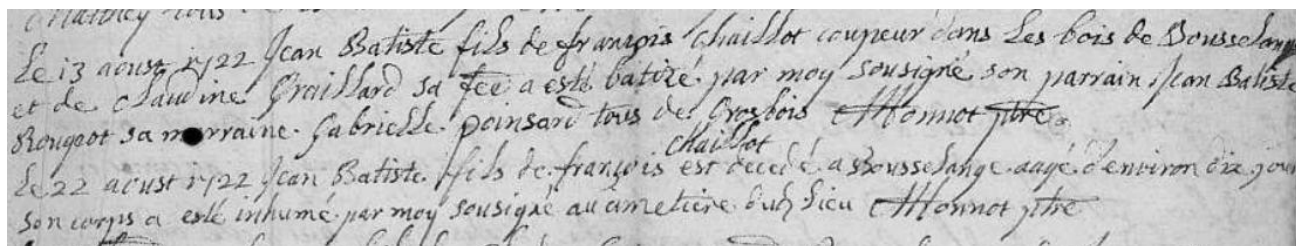 Le 13 aoust 1722 Jean Batiste fils de françois Chaillot coupeur dans Les bois de Bousselange
et de Claudine Graillard sa fee a esté batizé par moy sousigné son parrain Jean Batiste
Rougeot sa marraine Gabrielle poinsard tous de Grosbois Monnot ptre
Chaillot
Le 22 aoust 1722 Jean Batiste fils de françois est decedé a Bousselange aagé d'environ dix jours
son corps a esté inhumé par moy sousigné au cimetiere dudt lieu Monnot ptre